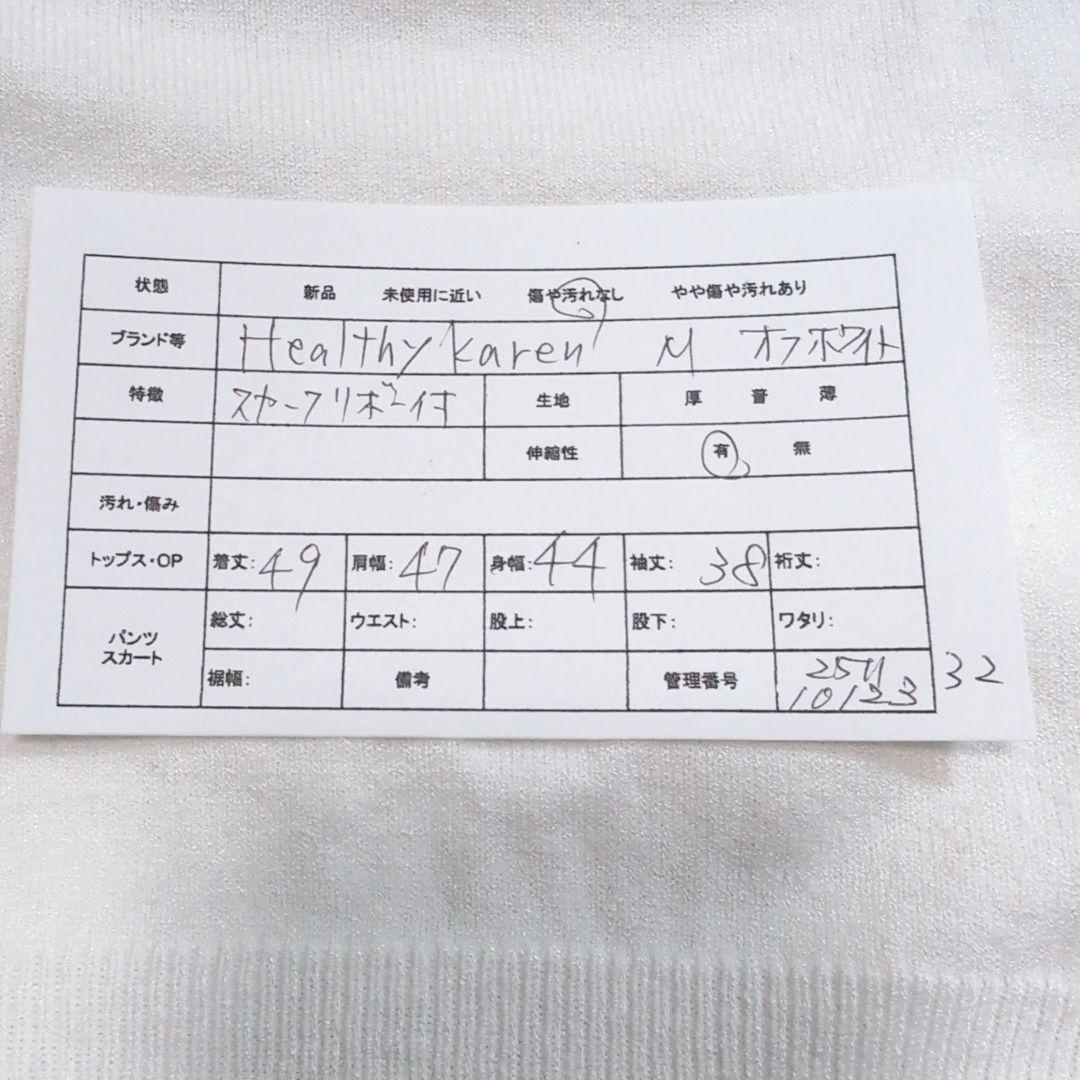 状態 新品 未使用に近い 傷や汚れなし やや傷や汚れあり
ブランド等 Healthy Karen M オフホワイト
特徴 スカーフリボン付 生地 厚 普 薄
伸縮性 有 無
汚れ・傷み
トップス・OP 着丈:49 肩幅:47 身幅:44 袖丈:38 裄丈:
パンツ スカート
総丈: ウエスト: 股上: 股下: ワタリ:
裾幅: 備考 管理番号
101223 32